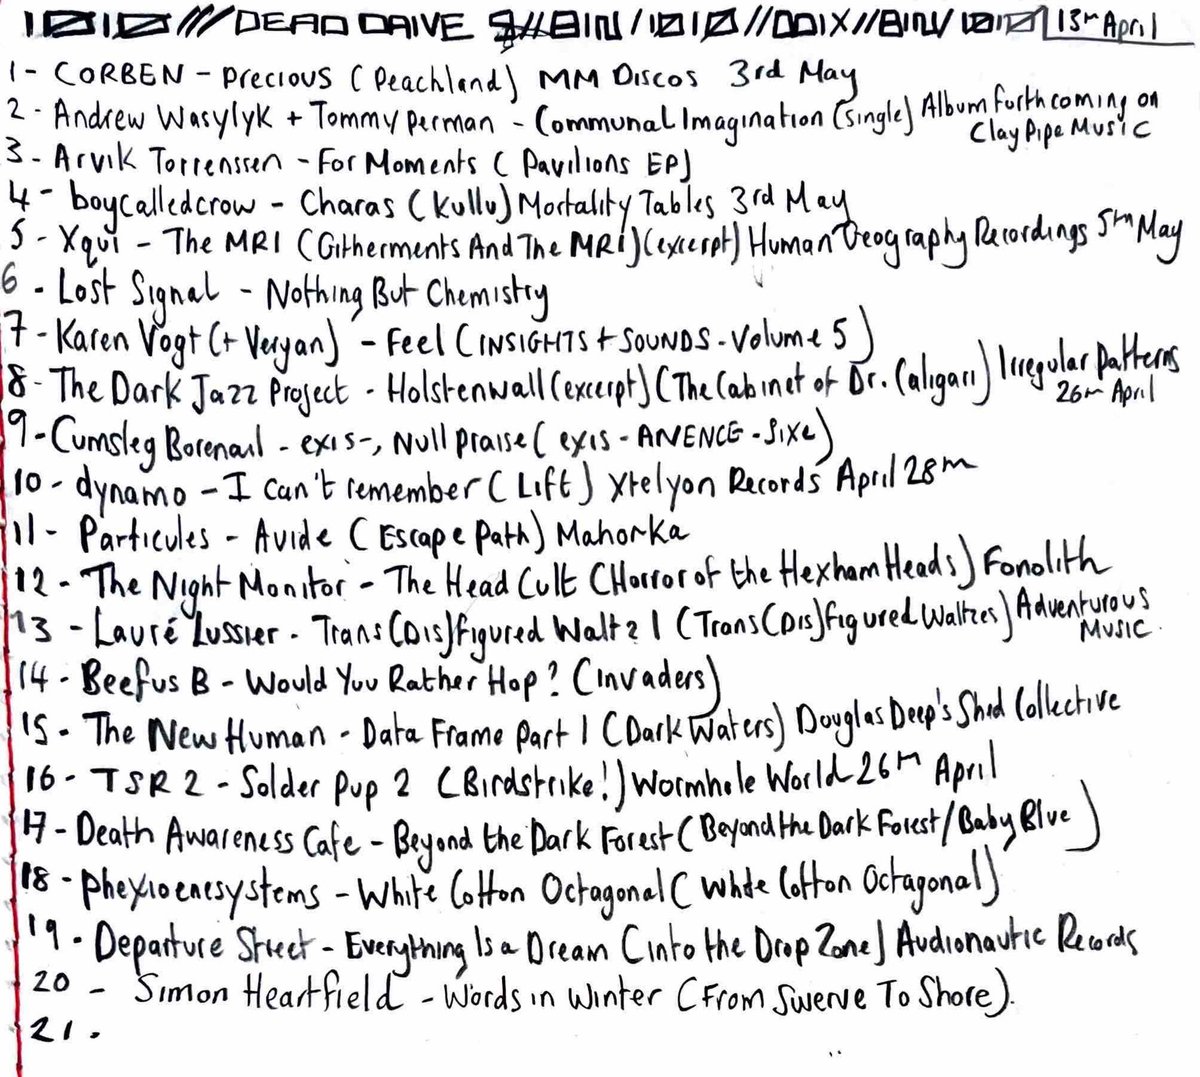 1010 /// DEAD DRIVE //BIN/1010//DDIX//BIN/1010 13th April
1 - CORBEN - Precious (Peachland) MM Discos 3rd May
2 - Andrew Wasylyk + Tommy Perman - Communal Imagination (single) Album forthcoming on
Clay Pipe Music
3 - Arvik Torrenssen - For Moments (Pavilions EP)
4 - boycalledcrow - Charas (Kullu) Mortality Tables 3rd May
5 - Xqui - The MRI (Githerments And The MRI) (excerpt) Human Geography Recordings 5th May
6 - Lost Signal - Nothing But Chemistry
7 - Karen Vogt (+ Veryan) - Feel (INSIGHTS + SOUNDS - Volume 5)
8 - The Dark Jazz Project - Holstenwall (excerpt) (The Cabinet of Dr. Caligari) Irregular Patterns
26th April
9 - Cumsleg Borenail - exis-, Null Praise (exis - ANENCE - sixe)
10 - dynamo - I can't remember (Lift) Xtelyon Records April 28th
11 - Particules - Avide (Escape Path) Mahorka
12 - The Night Monitor - The Head Cult (Horror of the Hexham Heads) Fonolith
13 - Lauré Lussier - Trans(Dis)figured Waltz 1 (Trans(Dis)figured Waltzes) Adventurous
Music
14 - Beefus B - Would You Rather Hop? (Invaders)
15 - The New Human - Data Frame Part 1 (Dark Waters) Douglas Deep's Shed Collective
16 - TSR2 - Solder Pup 2 (Birdstrike!) Wormhole World 26th April
17 - Death Awareness Cafe - Beyond the Dark Forest (Beyond the Dark Forest/Baby Blue)
18 - phexioenesystems - White Cotton Octagonal (White Cotton Octagonal)
19 - Departure Street - Everything Is a Dream (into the Drop Zone) Audionautic Records
20 - Simon Heartfield - Words in Winter (From Swerve To Shore).
21.